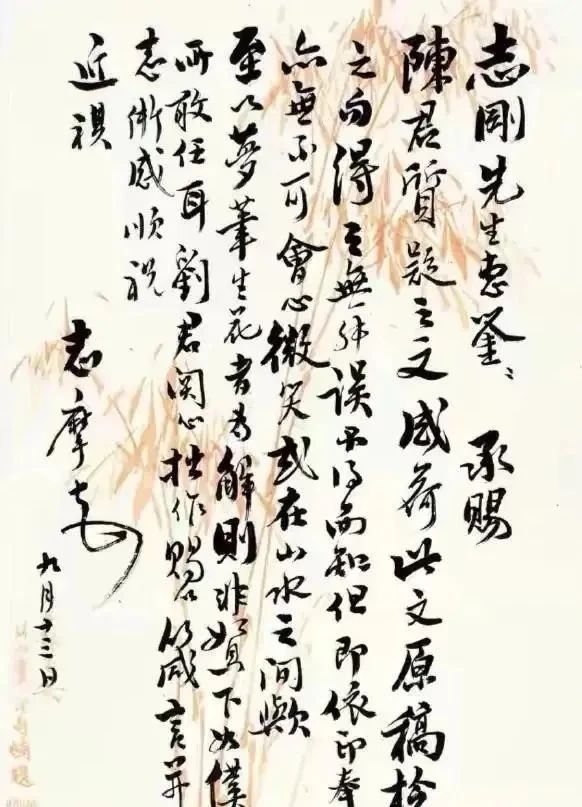 志剛先生惠鑒：承賜
陳君質疑之文感荷此文原稿
之句得之無外誤不得而知但即依印奉
亦無不可會心微笑或在山水之間歟
至以夢筆生花者為解則非嫏下如僕
所敢任耳劉君関心拙作賜以箴言并
志銜感順祝
近祺
志摩
九月十三日